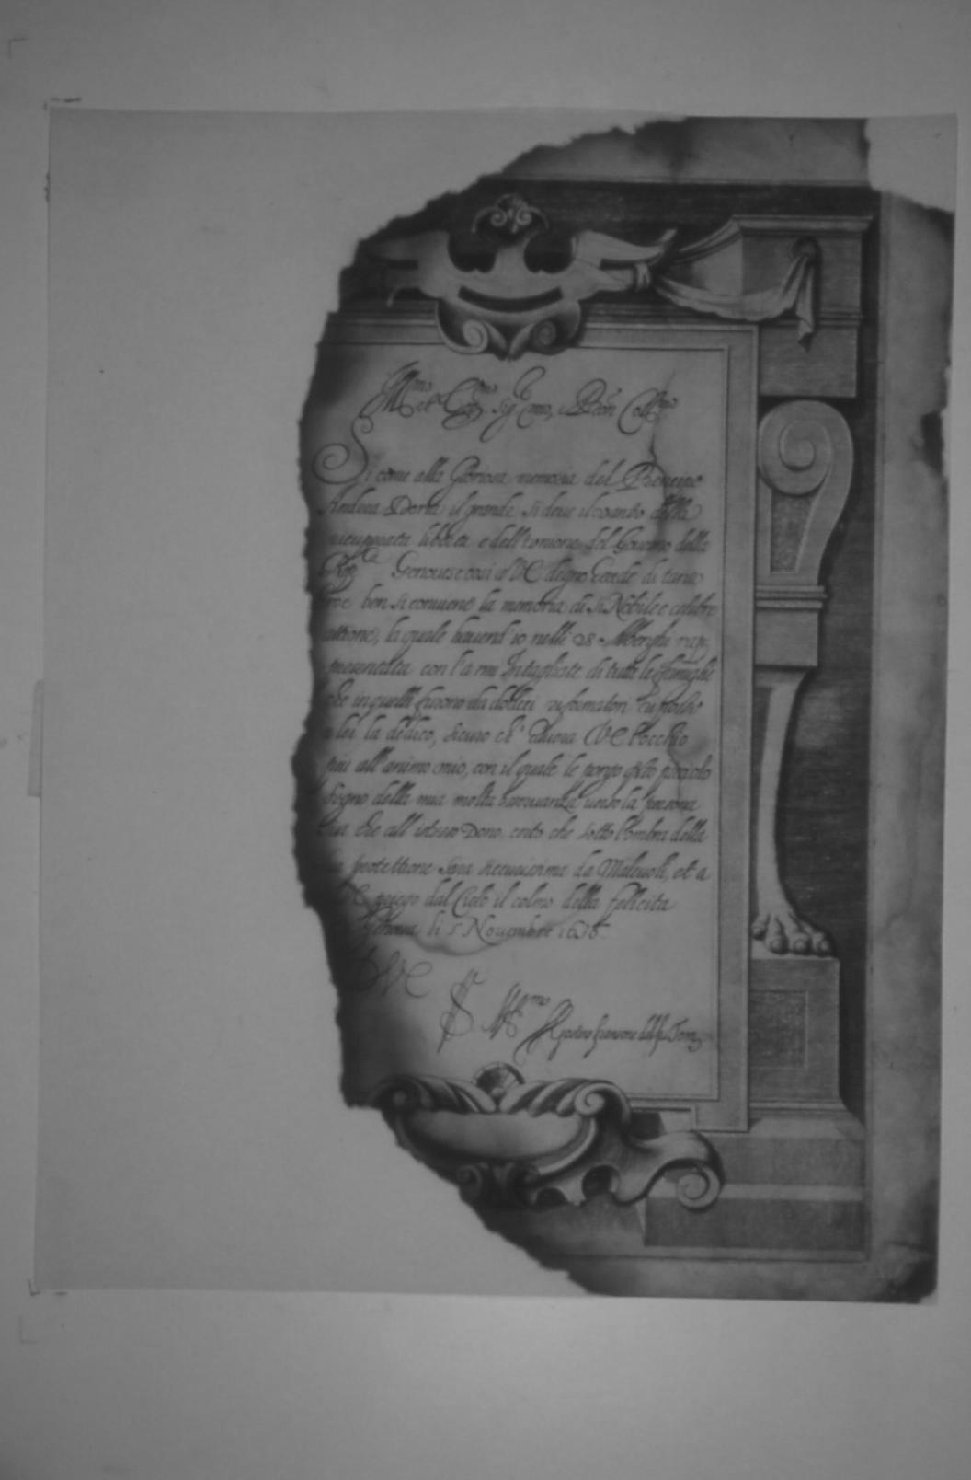 Ill.mo et Ecc.mo Sig.re mio, e Pron Coll.mo
Si come alla Gloriosa memoria del Prencipe
Andrea Doria il grande si deve il vanto della
libertà e dell'unione del Governo della
Rep.ca Genovese così a V E degno Erede di tanta
ben si conviene la memoria di sì Nobile e celebre
attione, la quale havend' io nelli 28 Alberghi rap,
presentata con l'armi Intagliate di tutte le famiglie
che in quelli furono da dodici riformatori
a lei la dedico, sicuro ch' V E l'occhio
più all' animo mio, con il quale le porgo q.sto picciolo
segno della mia molta verso la persona
sua che all' istesso Dono, certo che sotto l'ombra della
sua protettione sarà sicurissima da Malevoli, et a
V E priego dal Cielo il colmo della felicità
Genova li 5 Novembre
D V E
S.re Ill.mo